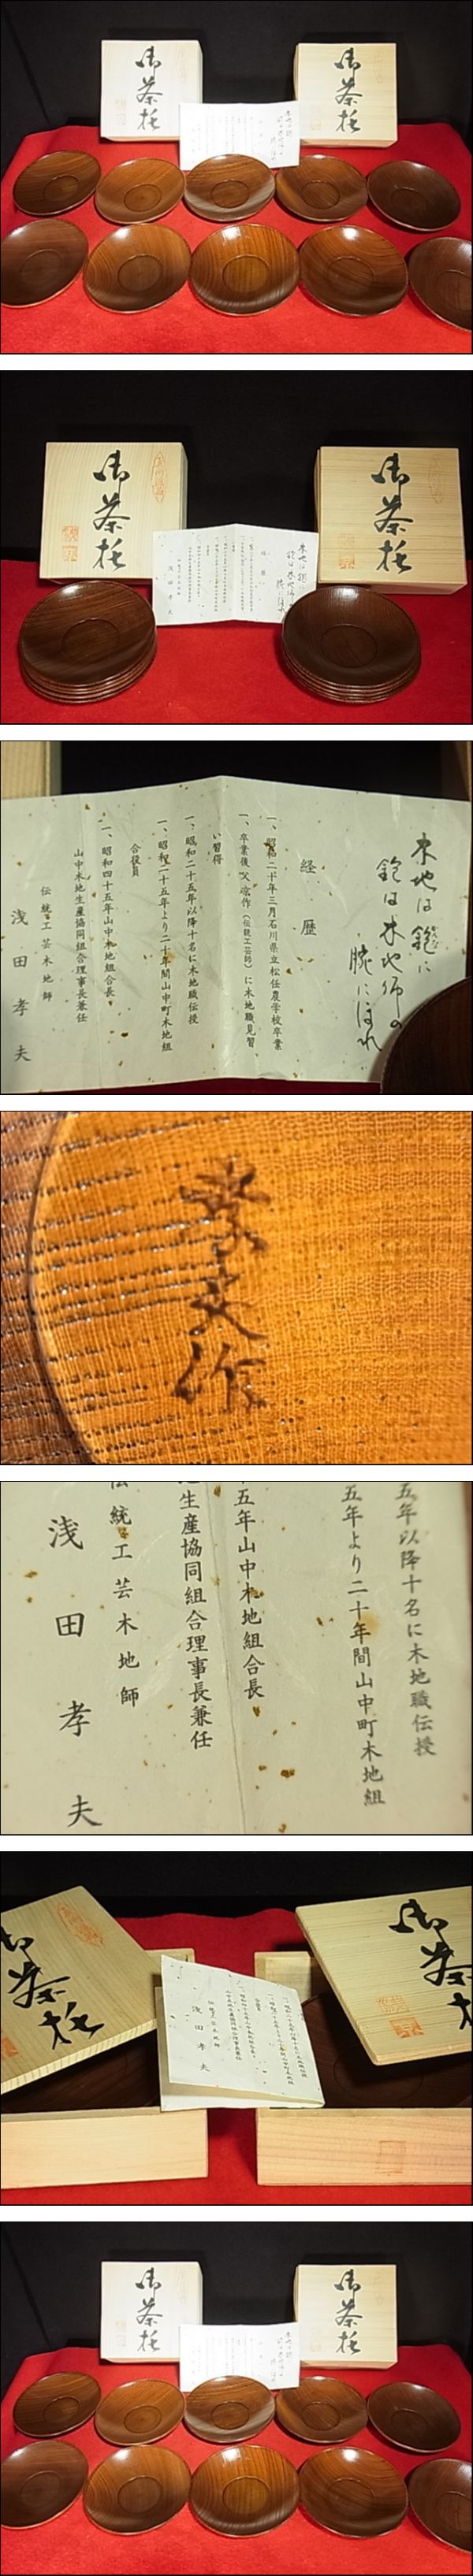 御茶托
御茶托
御茶托
御茶托
浅田孝夫
木地は鉋に
鉋は木地師の
腕にほれ
経歴
一、昭和二十年三月石川県立松任農学校卒業
一、卒業後父涼作(伝統工芸師)に木地職見習
い習得
一、昭和二十五年以降十名に木地職伝授
一、昭和二十五年より二十年間山中町木地組
合役員
一、昭和四十五年山中木地組合長
山中木地生産協同組合理事長兼任
伝統工芸木地師
浅田孝夫
孝夫作
五年以降十名に木地職伝授
五年より二十年間山中町木地組
五年山中木地組合長
生産協同組合理事長兼任
伝統工芸木地師
浅田孝夫
御茶托
御茶
浅田孝夫
御茶托
御茶托